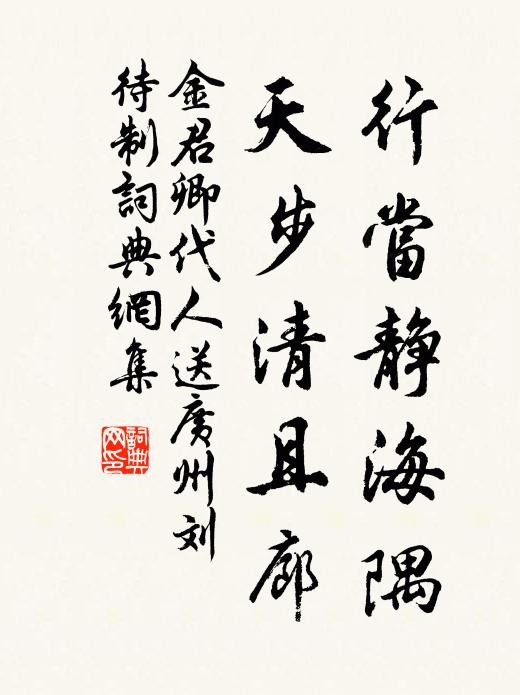 行當靜海隅
天步清且廓
金君卿代人送廣州刘
待制詞典網集
詞典網印